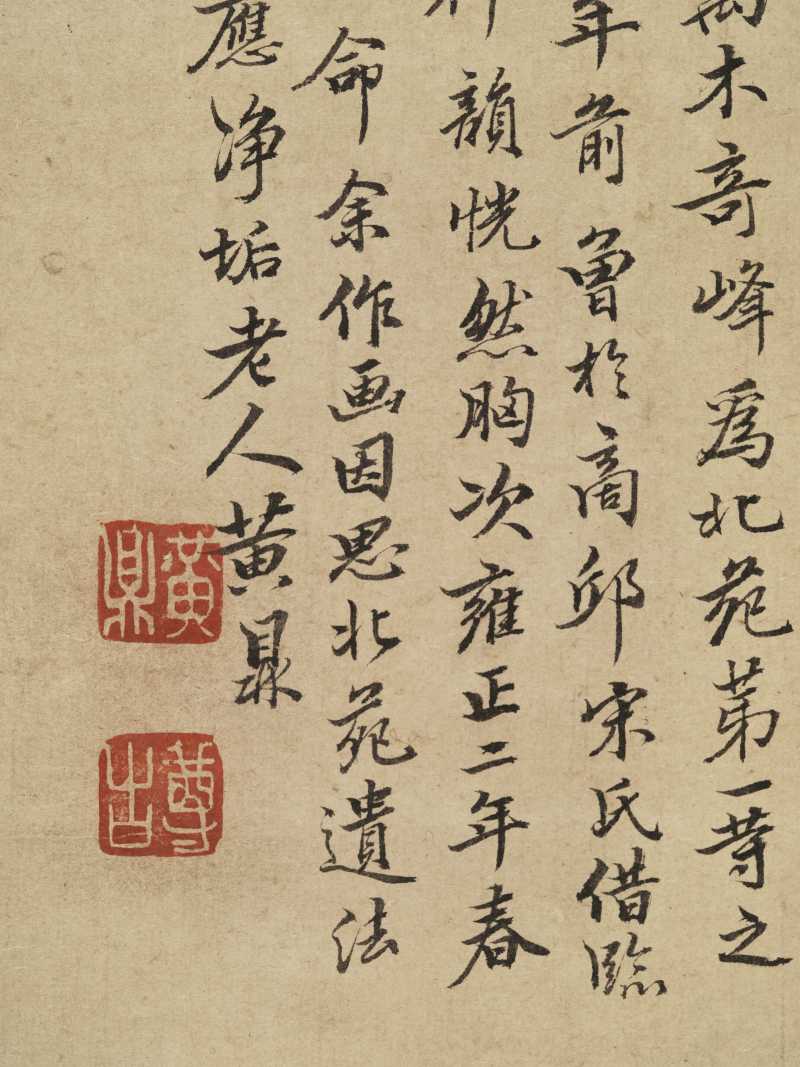 萬木奇峰為北苑第一等之
年前曾於商邱宋氏借臨
韻恍然胸次雍正二年春
命余作画因思北苑遺法
應净垢老人黄鼎
黄鼎
尊古